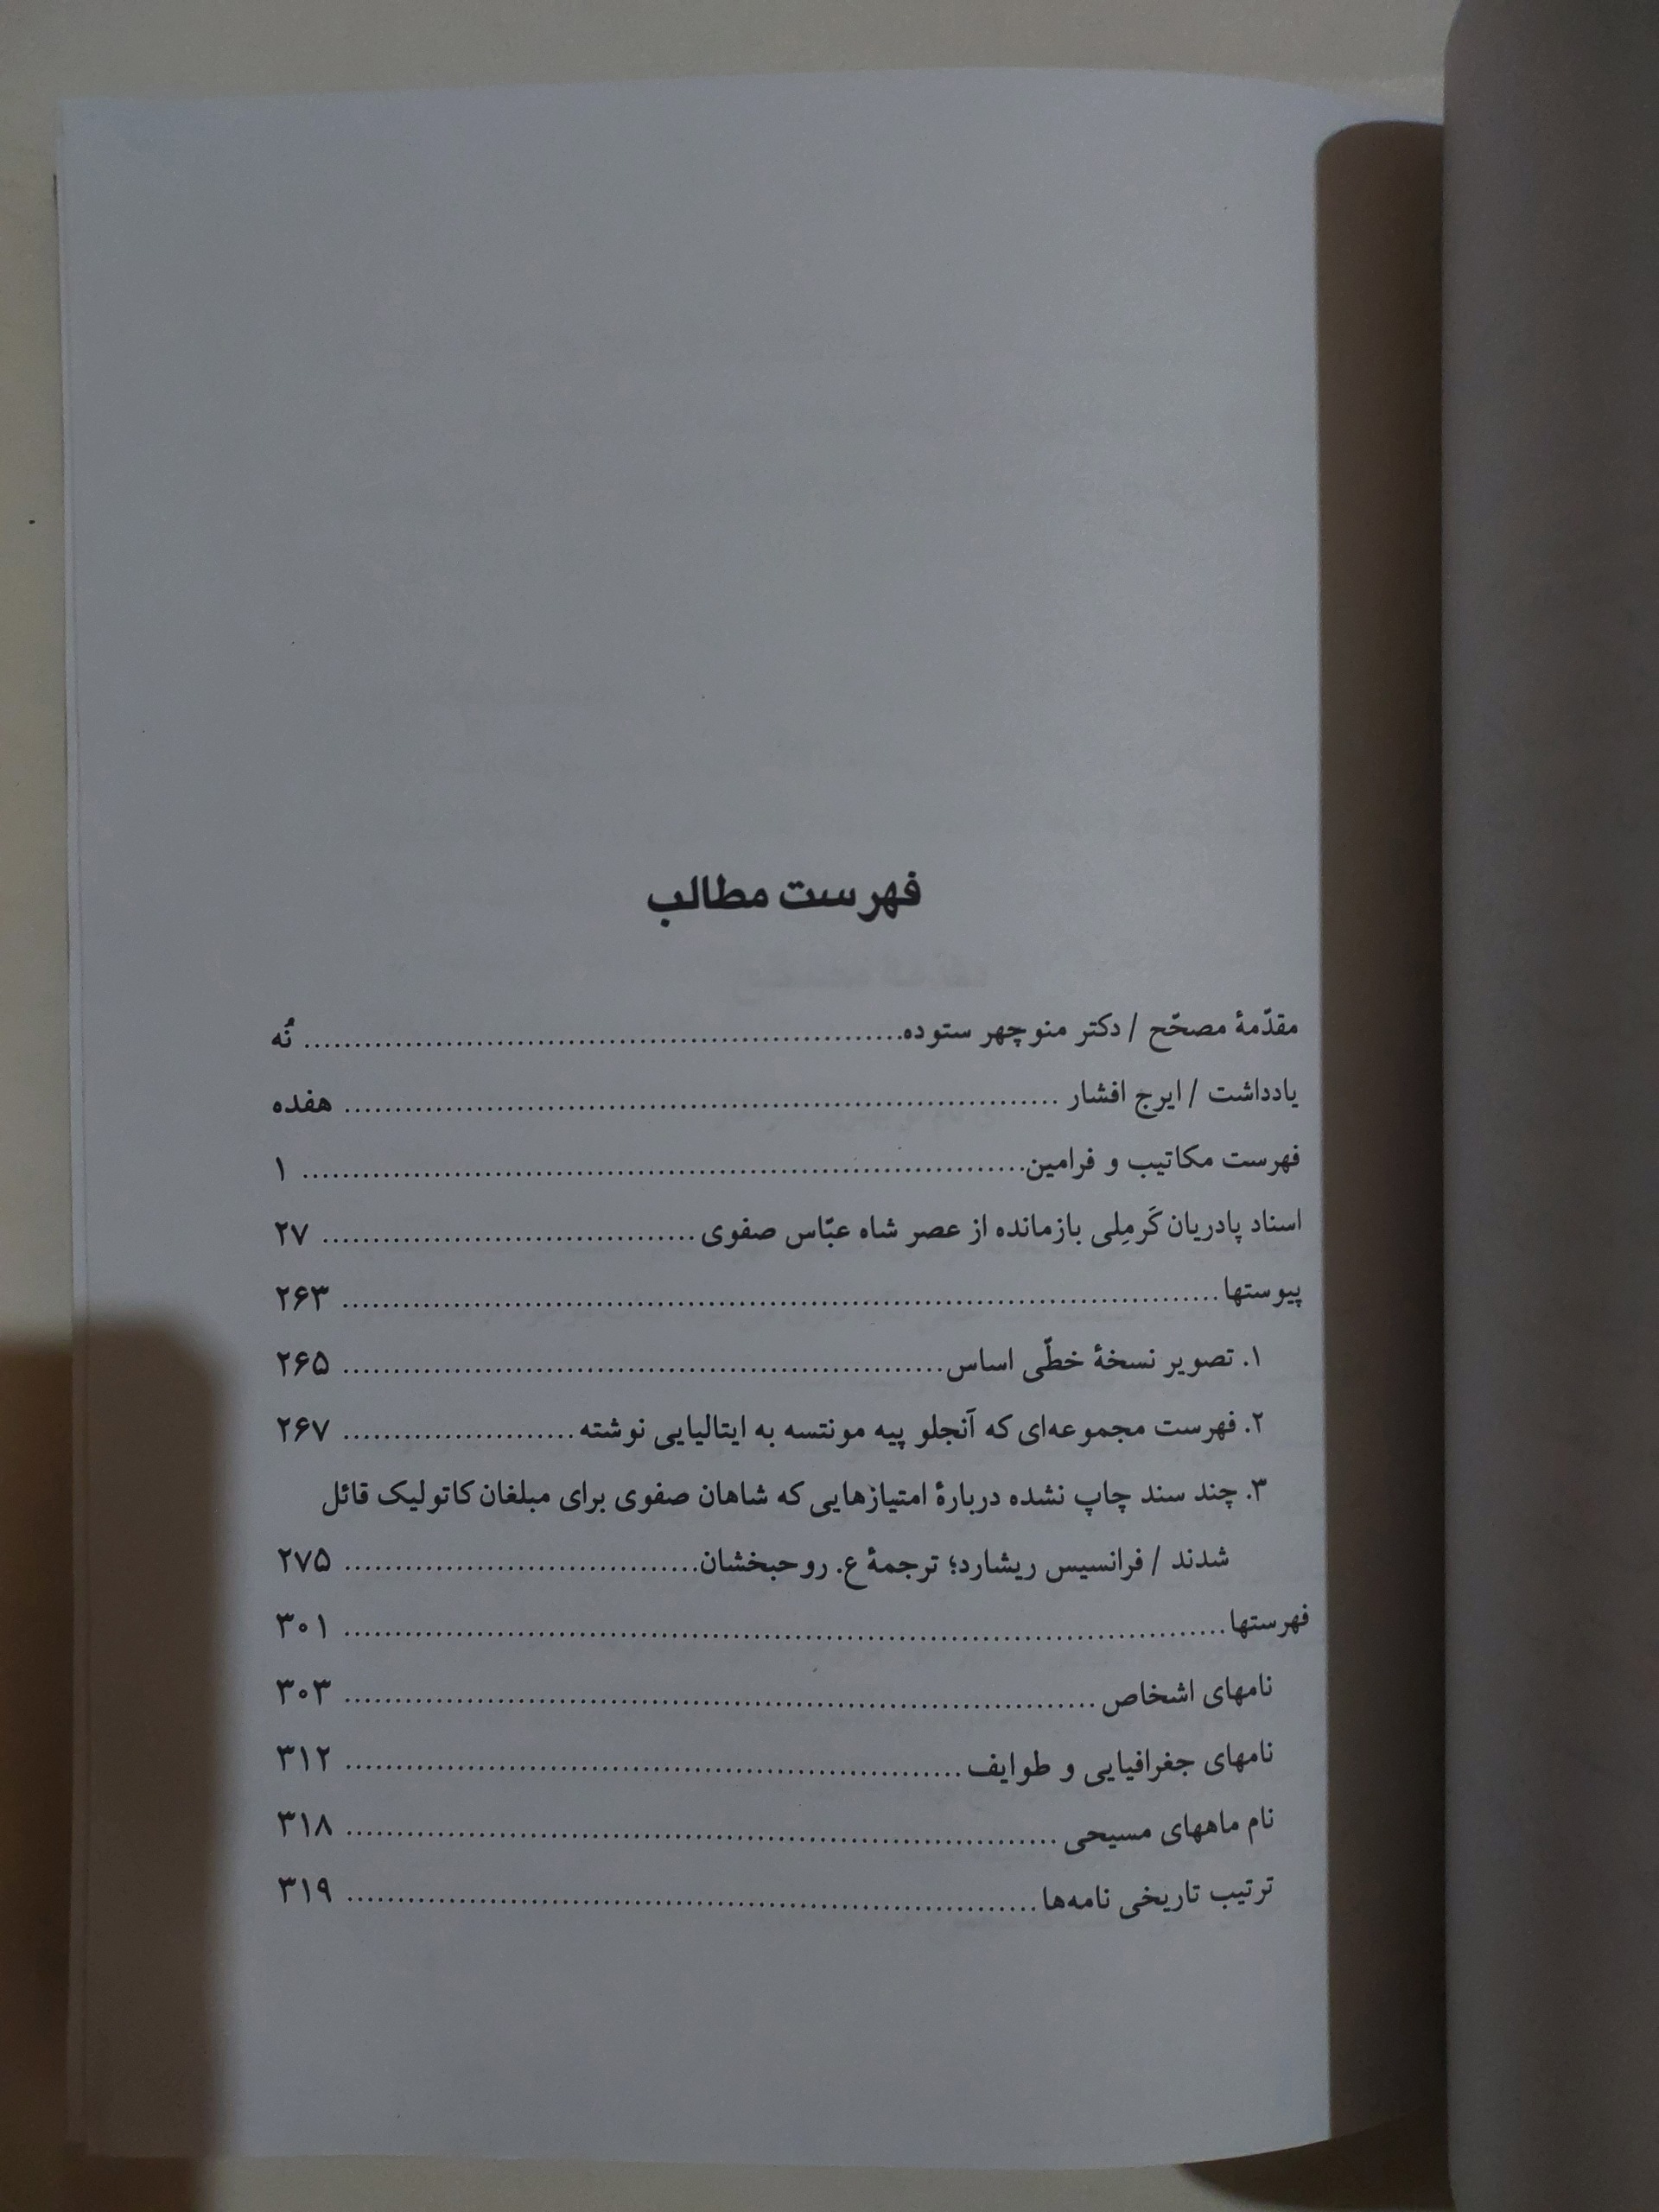 فهرست مطالب
مقدّمهٔ مصحّح / دکتر منوچهر ستوده ........ نُه
یادداشت / ایرج افشار ........ هفده
فهرست مکاتیب و فرامین ........ ۱
اسناد پادریان کَرمِلی بازمانده از عصر شاه عبّاس صفوی ........ ۲۷
پیوستها ........ ۲۶۳
۱. تصویر نسخهٔ خطّی اساس ........ ۲۶۵
۲. فهرست مجموعه‌ای که آنجلو پیه مونتسه به ایتالیایی نوشته ........ ۲۶۷
۳. چند سند چاپ نشده دربارهٔ امتیازهایی که شاهان صفوی برای مبلغان کاتولیک قائل
شدند / فرانسیس ریشارد؛ ترجمهٔ ع. روحبخشان ........ ۲۷۵
فهرستها ........ ۳۰۱
نامهای اشخاص ........ ۳۰۳
نامهای جغرافیایی و طوایف ........ ۳۱۲
نام ماههای مسیحی ........ ۳۱۸
ترتیب تاریخی نامه‌ها ........ ۳۱۹